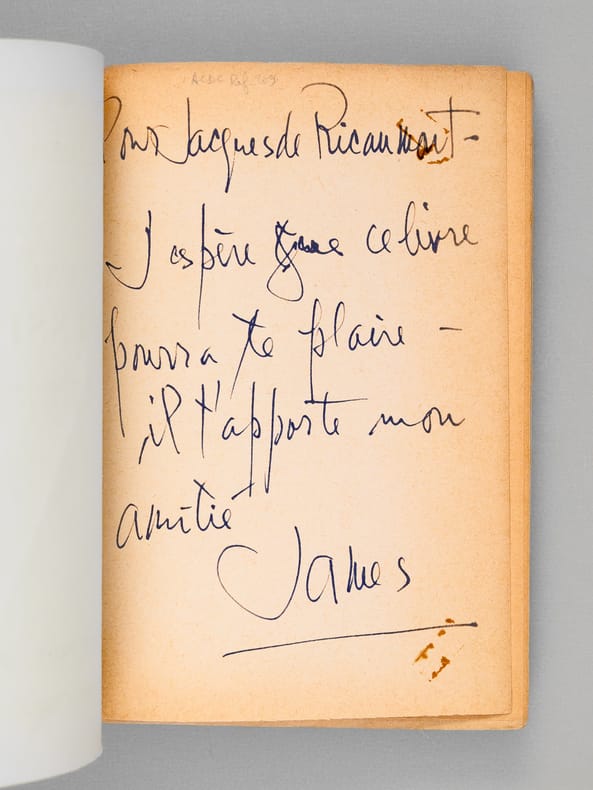 Pour Jacques de Ricaumont -
J espère que ce livre
pourra te plaire -
il t'apporte mon
amitié
James